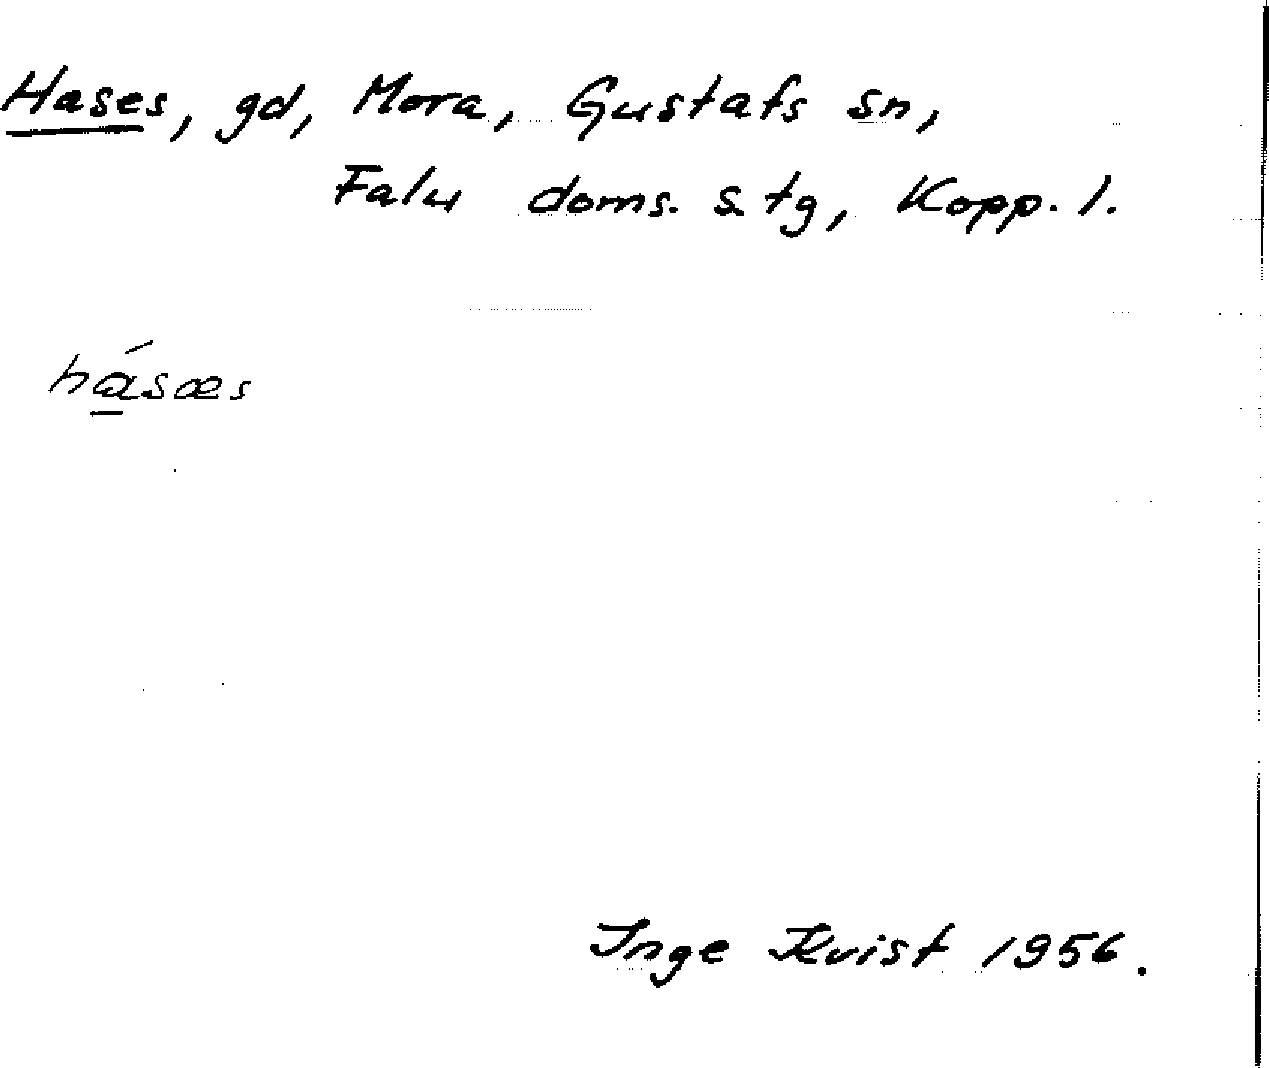 Hases, gd, Mora, Gustafs sn,
Falu doms. s. tg, Kopp. l.
hásæs
Inge Kvist 1956.